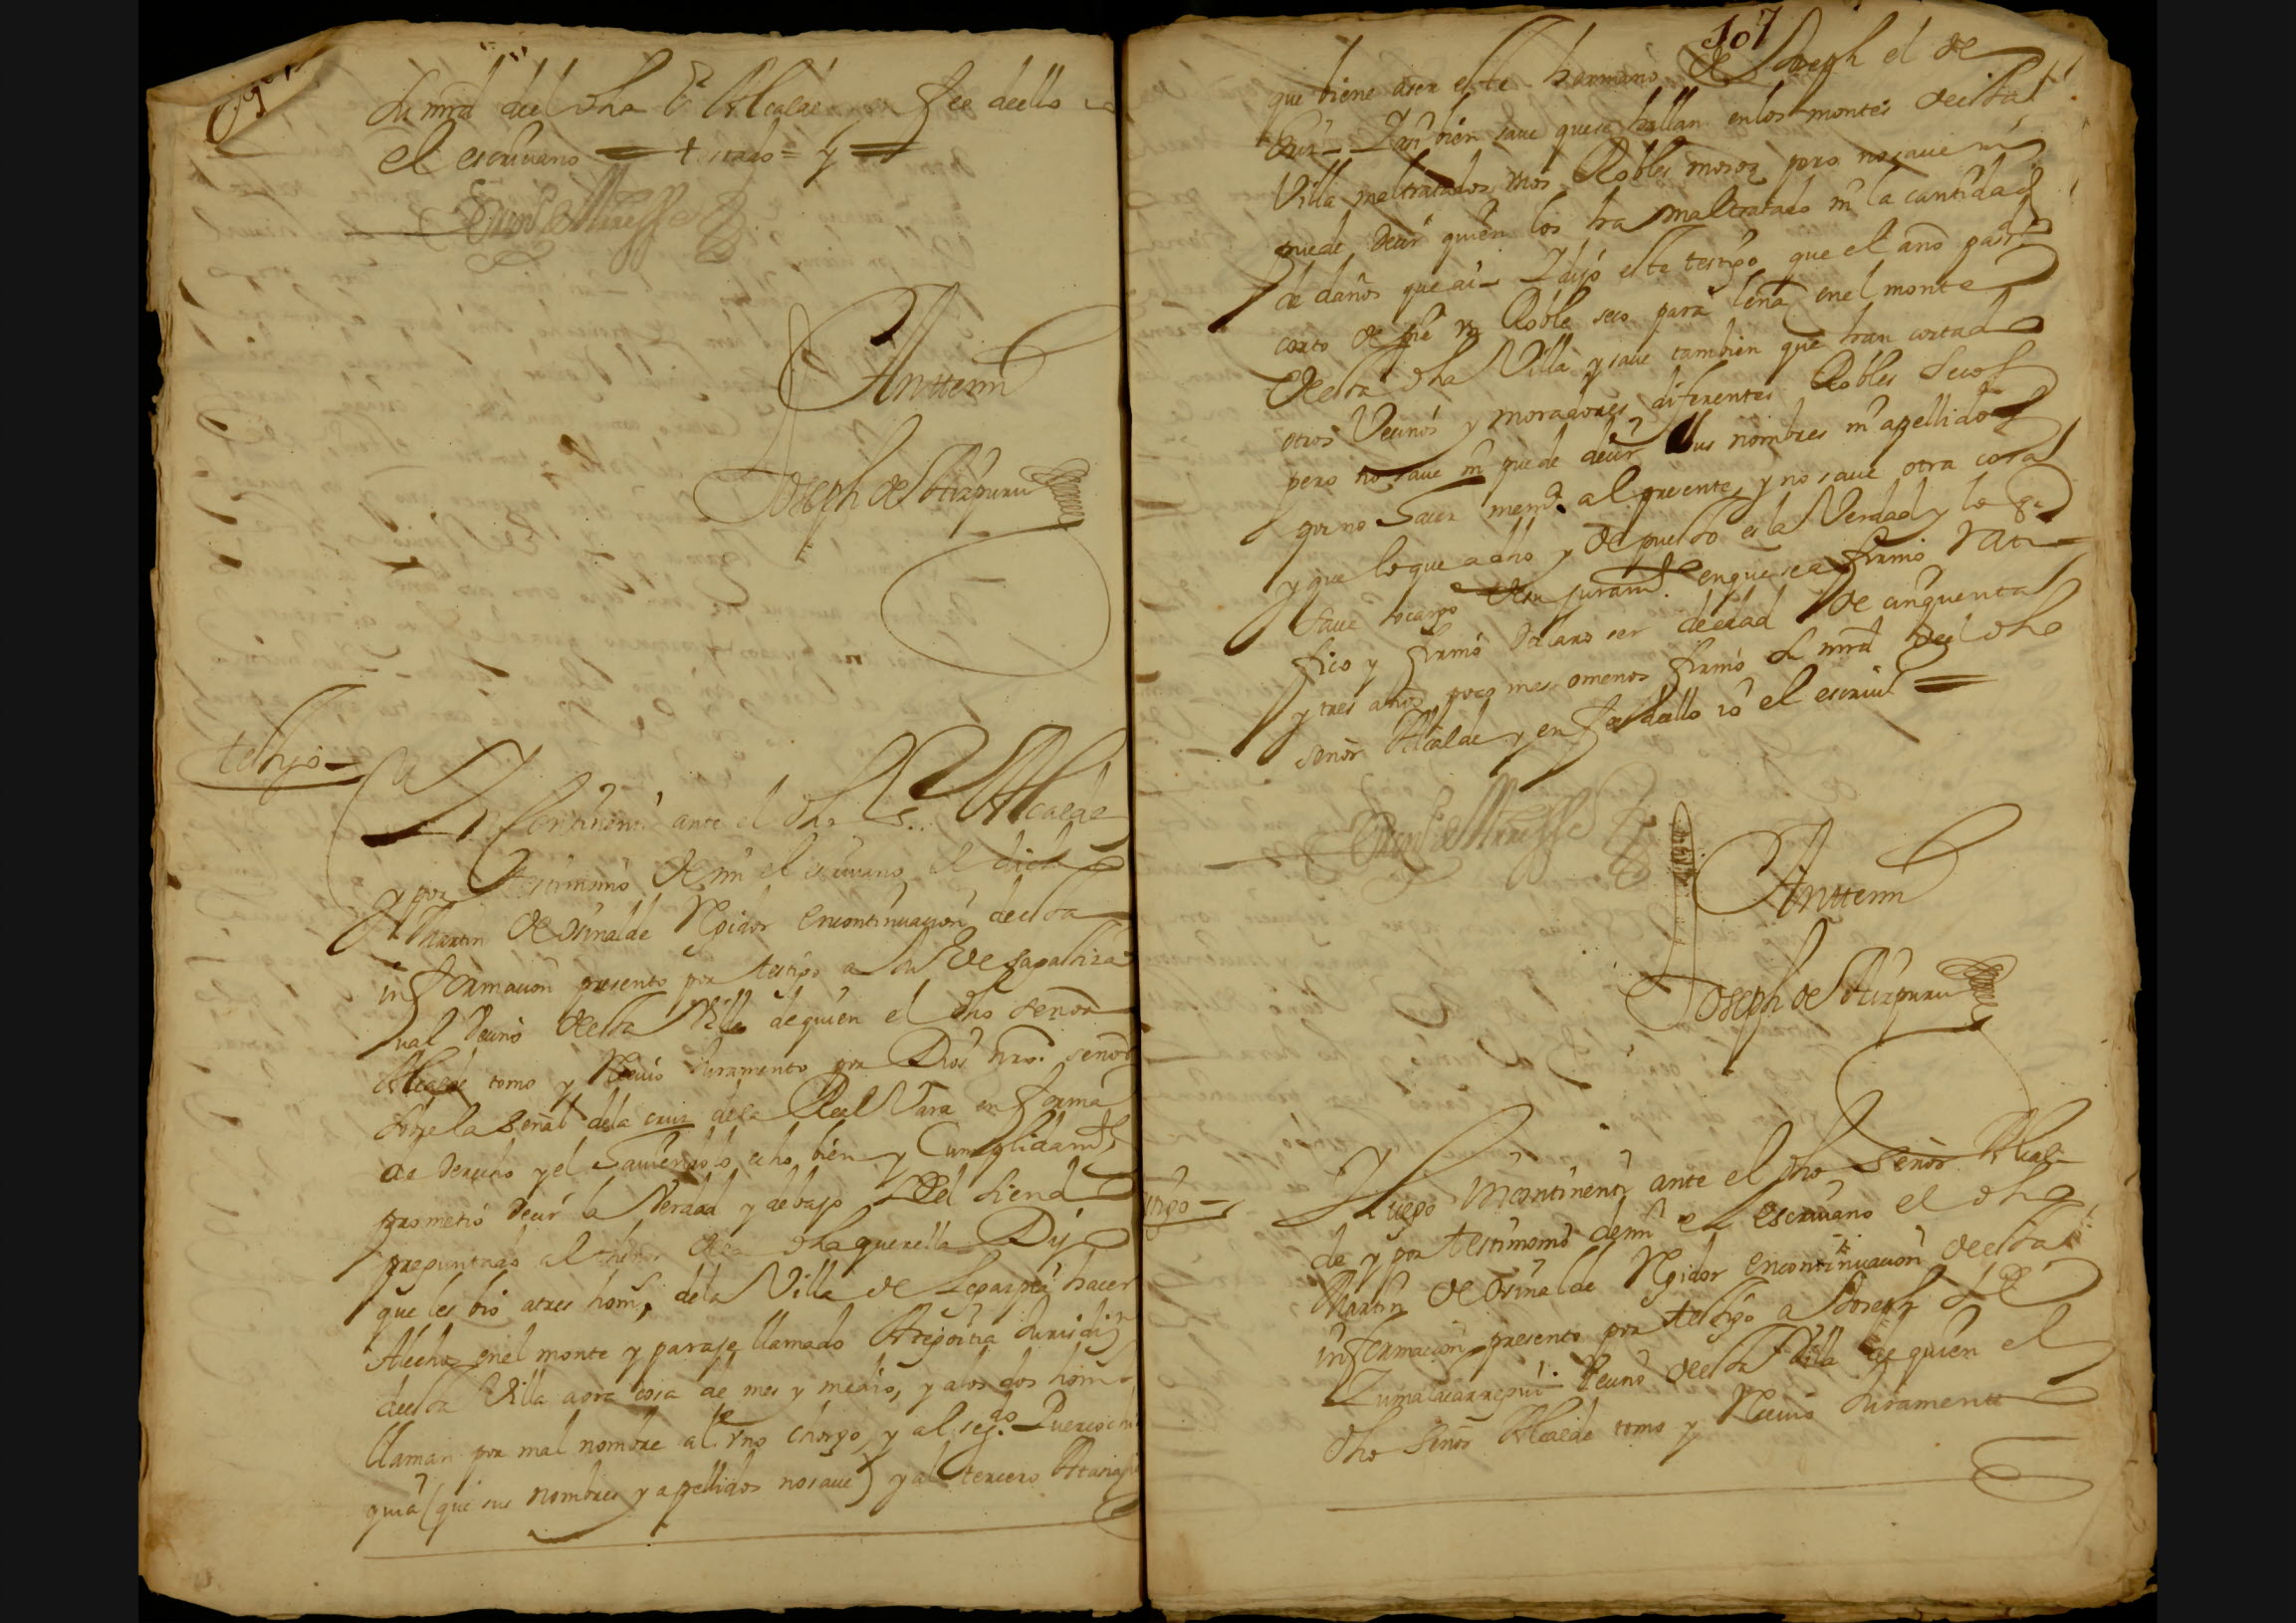 Su mrd del dho Sr Alcalde y en fee dello yo
el escrivano
Anttemi
Joseph de Aizpuru
testigo
En continenti ante el dho Sr Alcalde
y por testimonio de mi el escrivano el dicho
Martin de Orinalde Rejidor en continuacion de esta
informacion presento por testigo a
vecino de esta Villa de quien el dho señor
Alcalde tomo y Recivio Juramento por Dios nro. señor
sobre la señal de la cruz de la Real Vara en forma
de derecho y el haviendolo echo bien y Cumplidamte
prometio decir la Verdad y debajo del siendo
preguntado al thenor de la dha querella Dijo
que les bio a tres homs. de la Villa de Segazpia hacer
Alechos en el monte y paraje llamado Jurisdizn
de esta Villa aora cosa de mes y medio, y a los dos homs
llaman por mal nombre al Vno Chorzo, y al segdo.
quia (que sus nombres y apellidos no save) y al tercero
107
que biene a ser este hermano de Joseph el de
Cruz Y asi bien save que se hallan en los montes de esta
Villa maltratados Vnos Robles mosos pero no save ni
puede decir quien los ha maltratado ni la cantidad
de daños que ai Y dijo este testigo que el año pasado
corto de pie Vn Roble seco para leña en el monte
de esta dha Villa y save tambien que han cortado
otros Vecinos y moradores diferentes Robles secos
pero no save ni puede decir sus nombres ni apellidos
por no hacer memª. al presente, y no save otra cosa
y que lo que a dho y depuesto es la Verdad y lo que
save so cargo de su juramto. en que se afirmo rati
fico y firmo declaro ser de edad de cinquenta
y tres años poco mas o menos firmo Su mrd del dho
señor Alcalde y en fee dello yo el escrivo
Anttemi
Joseph de Aizpuru
testigo
Luego incontinenti ante el dho Señor Alcal
de y por testimonio de mi el escrivano el dho
Martin de Orinalde Rejidor en continuacion de esta
informacion presento por testigo a Joseph de
Zumalacarregui Vecino de esta Villa de quien el
dho Señor Alcalde tomo y Recivio Juramento